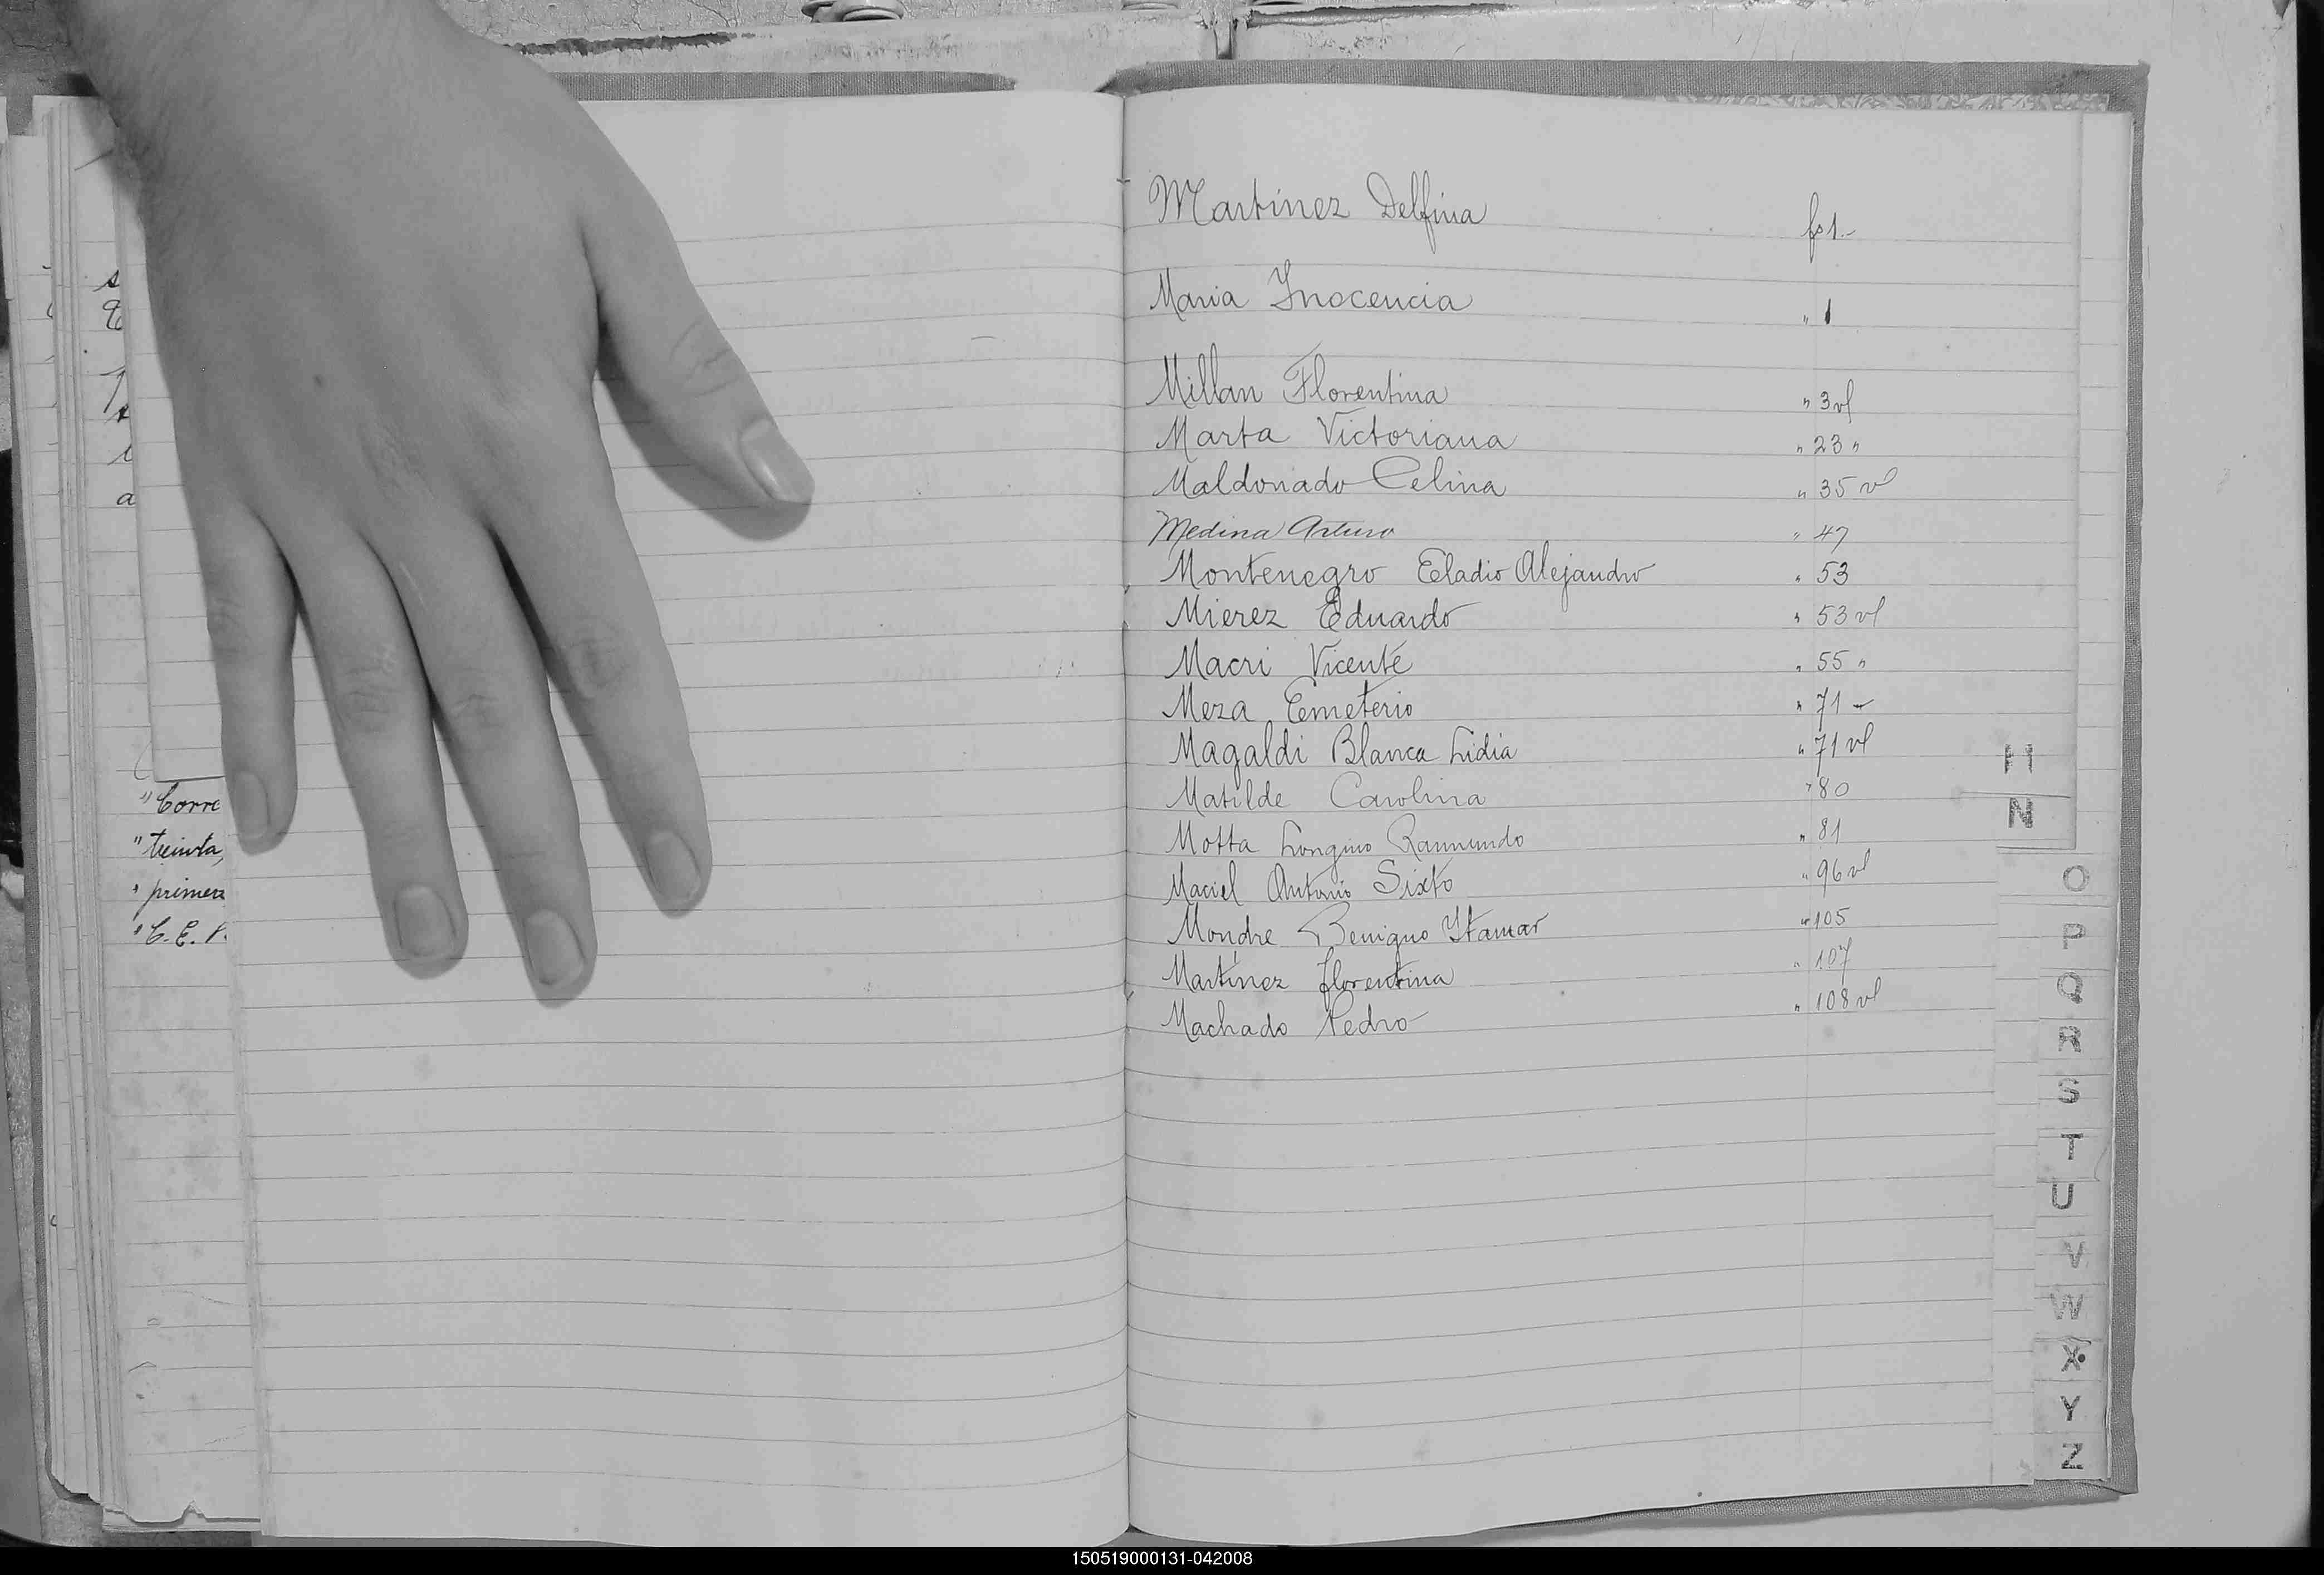 Martinez Delfina fs 1.-
Maria Inocencia " 1
Millan Florentina " 3 vl
Marta Victoriana " 23 "
Maldonado Celina " 35 vl
Medina Arturo " 47
Montenegro Eladio Alejandro " 53
Mierez Eduardo " 53 vl
Macri Vicente " 55 "
Meza Emeterio " 71 -
Magaldi Blanca Lidia " 71 vl
Matilde Carolina " 80
Motta Longino Raimundo " 81
Maciel Antonio Sixto " 96 vl
Mondre Benigno Itamar " 105
Martinez Florentina " 107
Machado Pedro " 108 vl
"Corre
"treinta,
" primera
" C. E.
a
N
O
P
Q
R
S
T
U
V
W
X
Y
Z
150519000131-042008